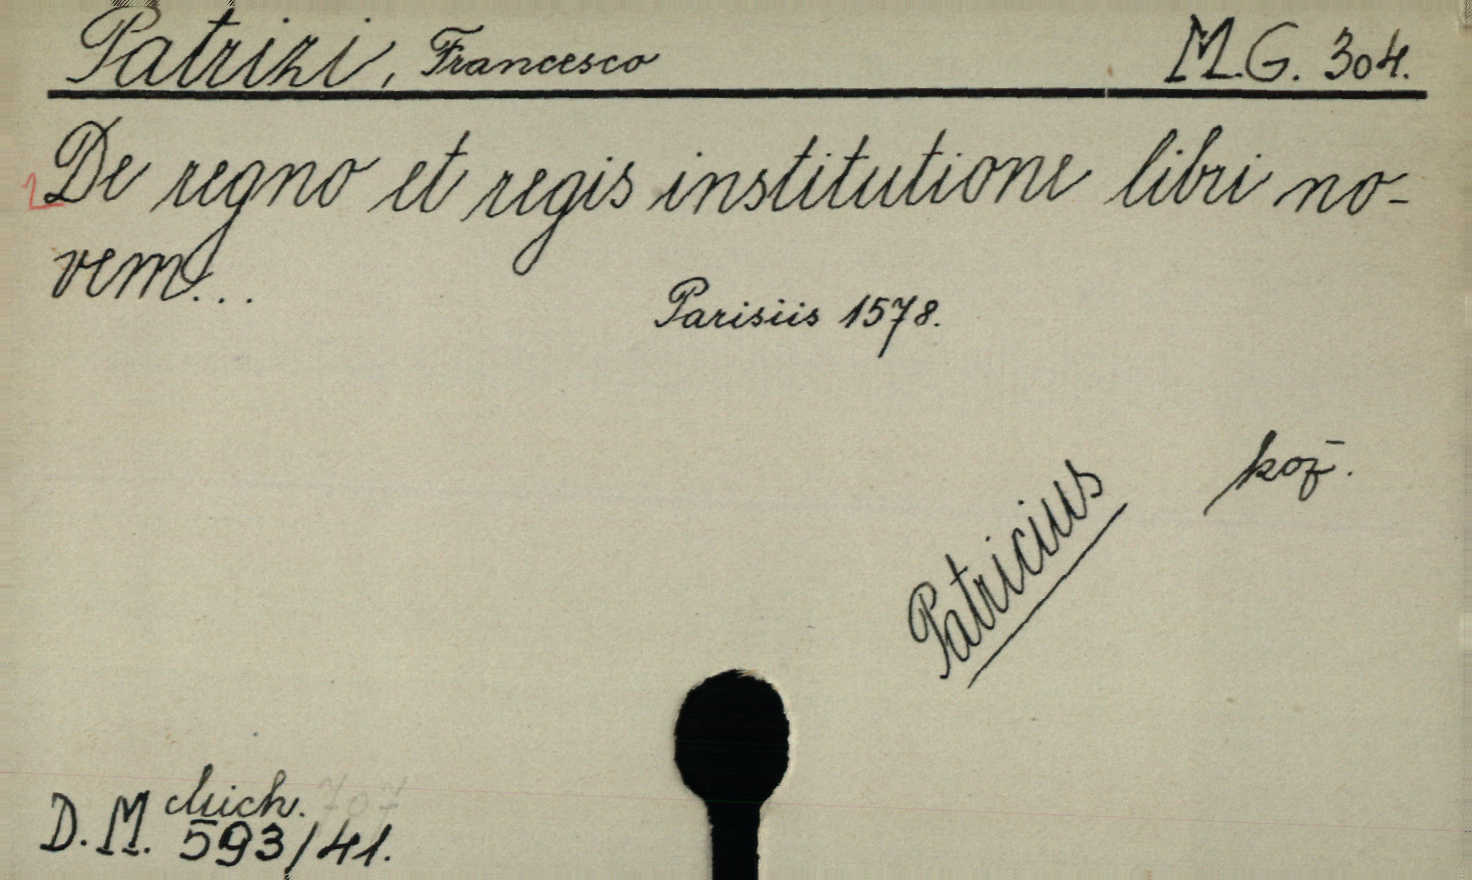 Patrizi, Francesco M.G. 304.
De regno et regis institutione libri no-
vem...
Parisiis 1578.
kož.
Patricius
Mich. 707
D. M. 593/41.